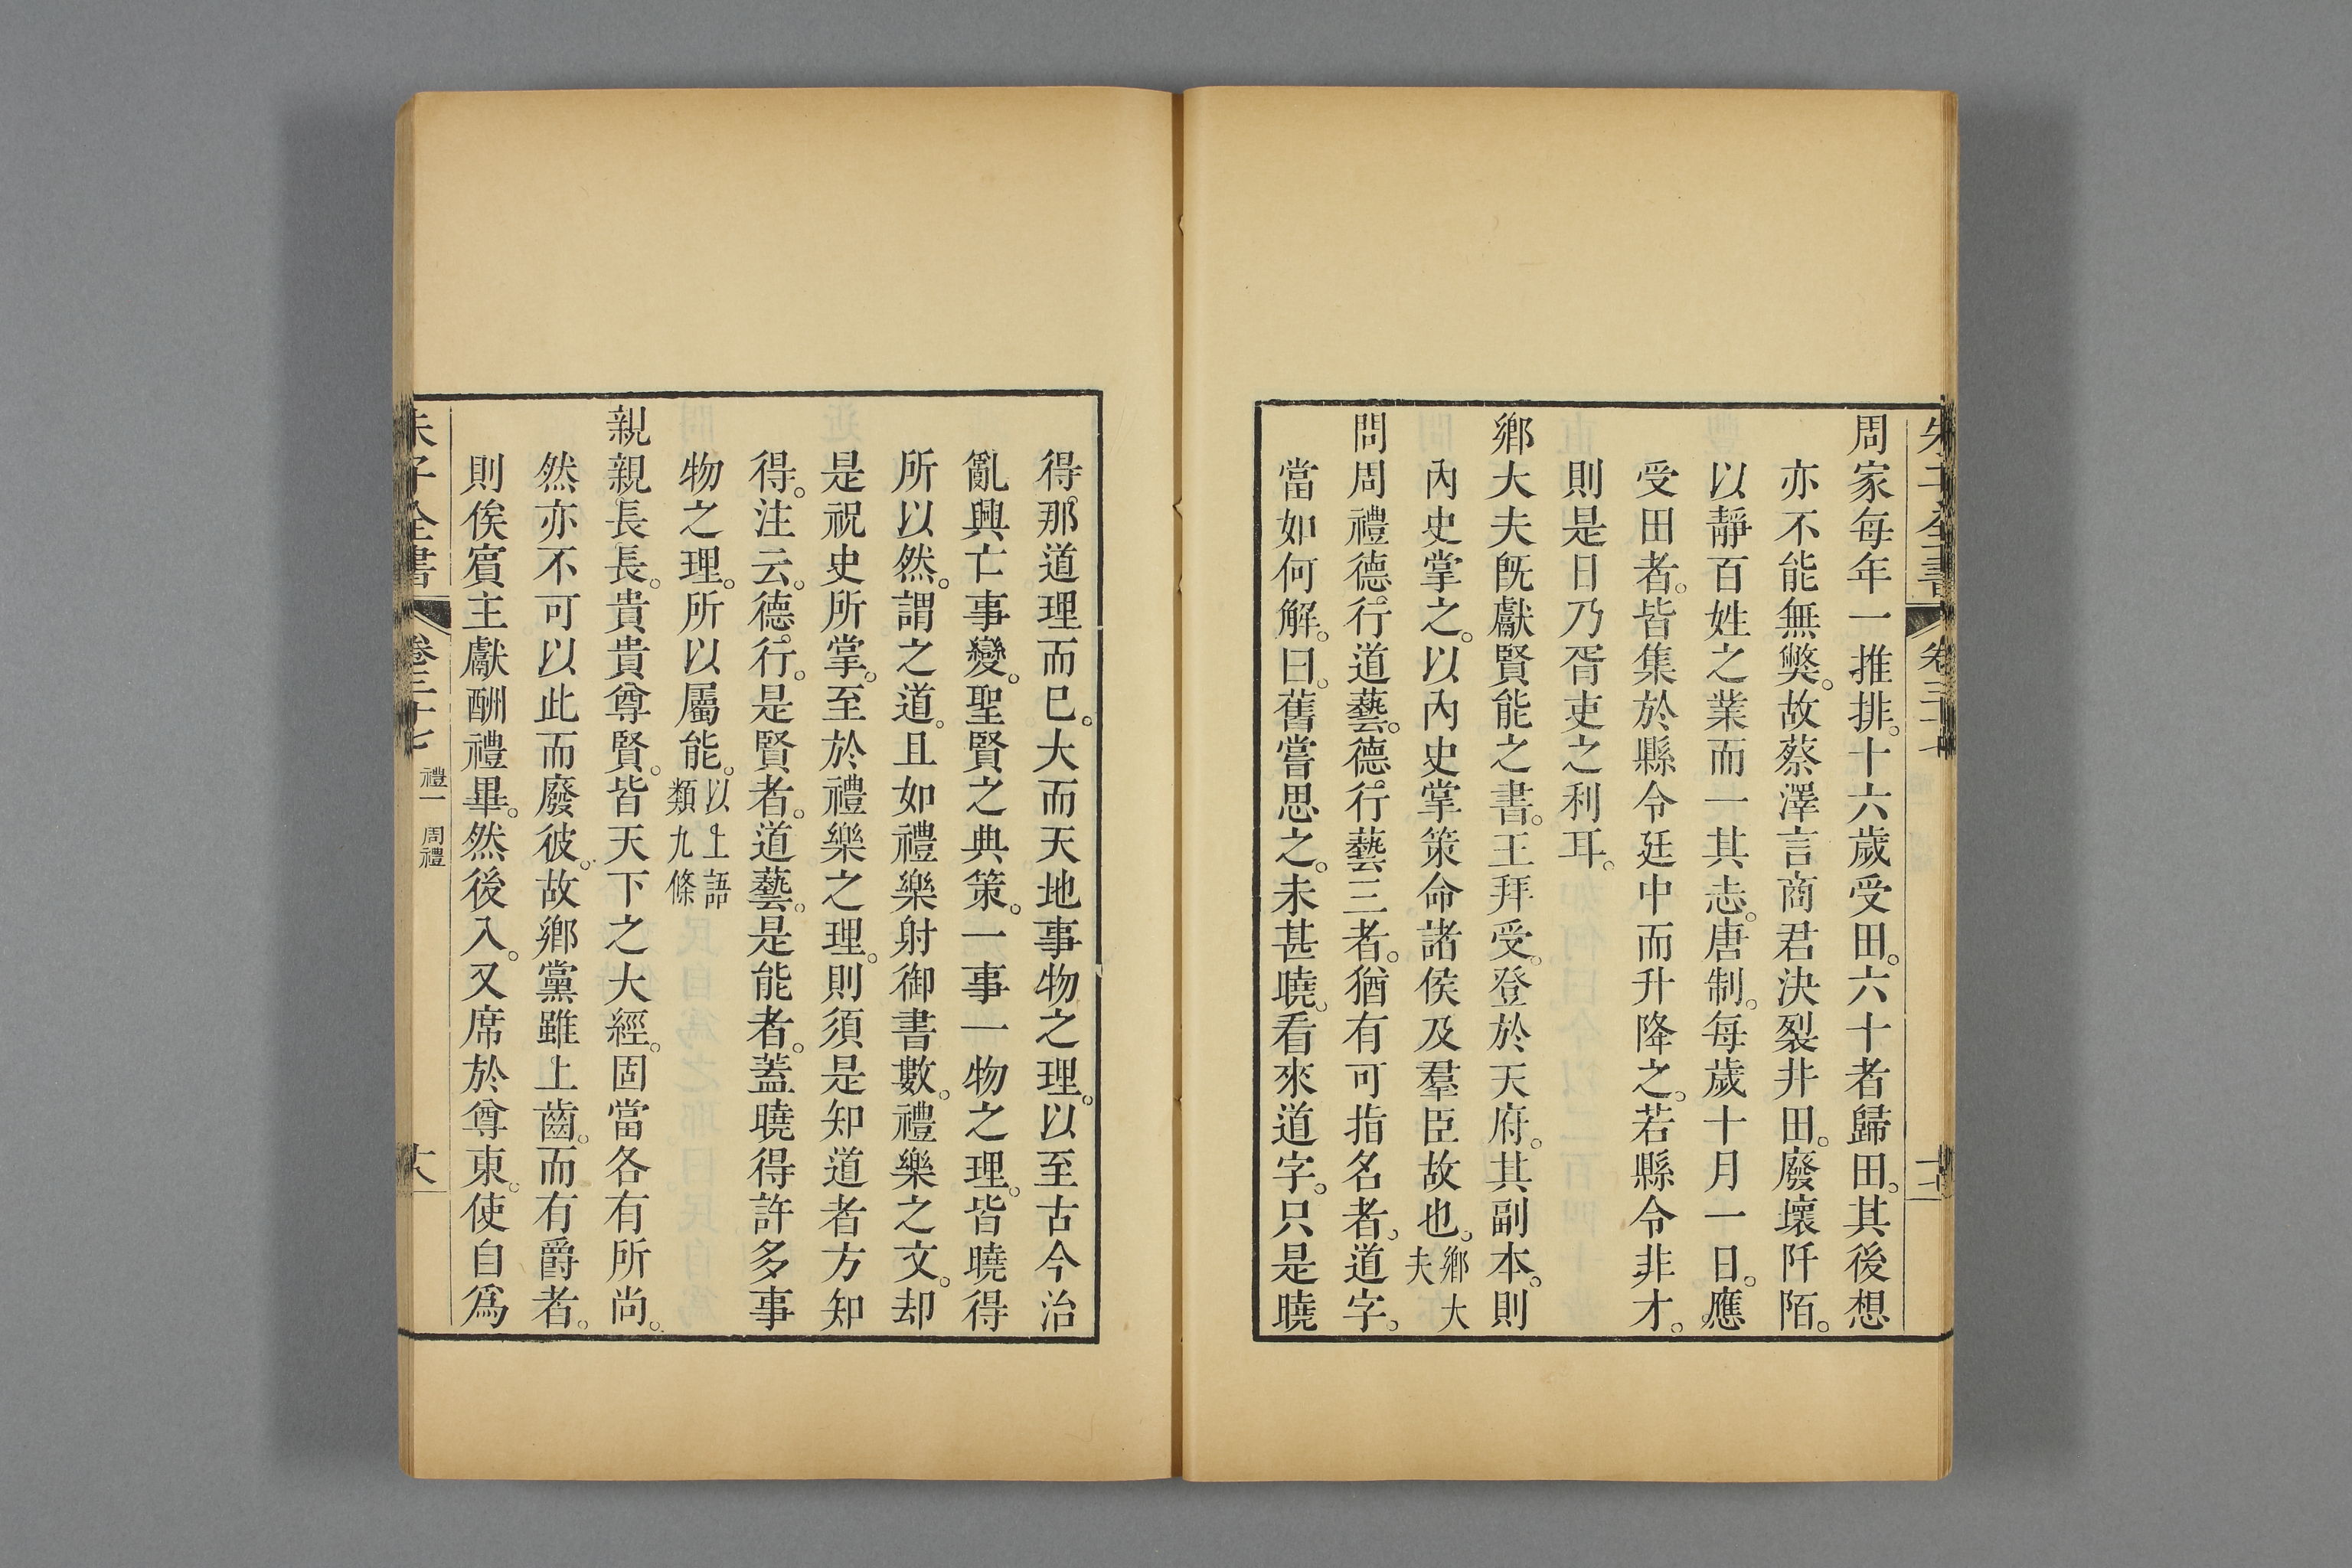 周家每年一推排。十六歲受田。六十者歸田。其後想
亦不能無弊。故蔡澤言商君決裂井田。廢壞阡陌。
以靜百姓之業而一其志。唐制。每歲十月一日。應
受田者。皆集於縣令廷中而升降之。若縣令非才。
則是日乃胥吏之利耳。
鄉大夫旣獻賢能之書。王拜受。登於天府。其副本。則
內史掌之。以內史掌策命諸侯及羣臣故也。鄉大
夫
問周禮德行道藝。德行藝三者。猶有可指名者。道字。
當如何解。曰。舊嘗思之。未甚曉。看來道字。只是曉
得那道理而已。大而天地事物之理。以至古今治
亂興亡事變。聖賢之典策。一事一物之理。皆曉得
所以然。謂之道。且如禮樂射御書數。禮樂之文。却
是祝史所掌。至於禮樂之理。則須是知道者方知
得。注云。德行。是賢者。道藝。是能者。蓋曉得許多事
物之理。所以屬能。以上語
類九條
親親長長。貴貴尊賢。皆天下之大經。固當各有所尚。
然亦不可以此而廢彼。故鄉黨雖上齒。而有爵者。
則俟賓主獻酬禮畢。然後入。又席於尊東。使自爲
朱子全書
卷三十七
禮一 周禮